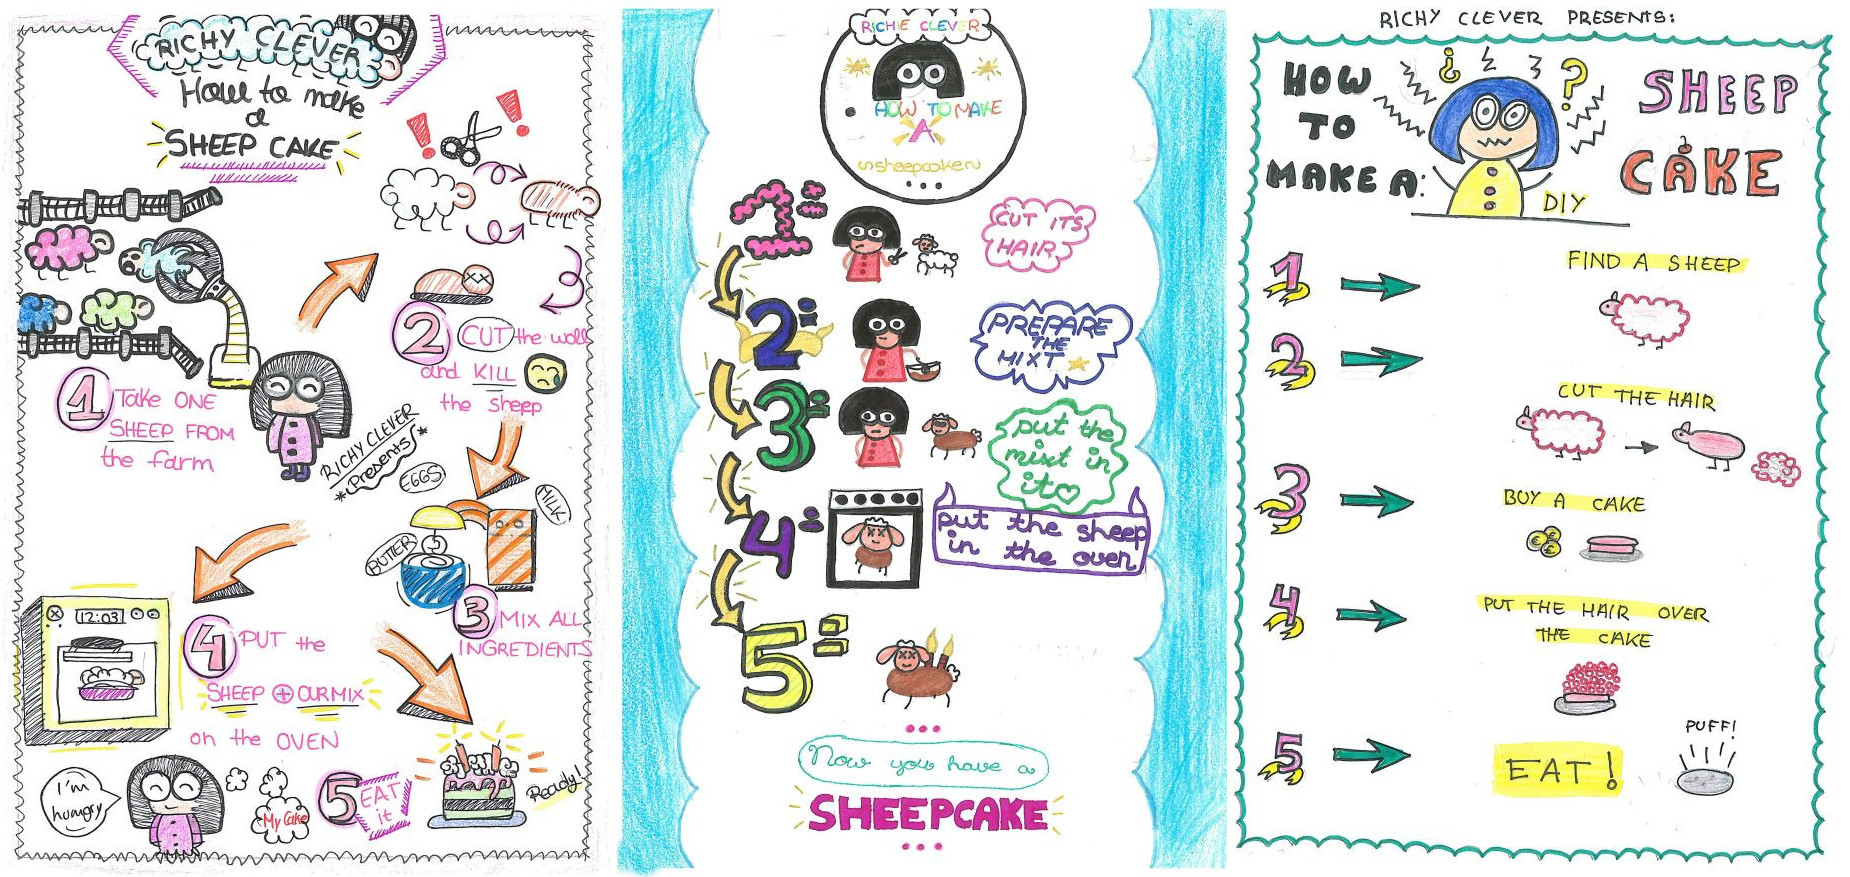 RICHY CLEVER
How to make
a
SHEEP CAKE
1 Take ONE
SHEEP FROM
the farm
2 CUT the wool
and KILL
the sheep
RICHY CLEVER
*Presents*
EGGS
MILK
BUTTER
3 MIX ALL
INGREDIENTS
12:03
4 PUT the
SHEEP + OUR MIX
on the OVEN
I'm
hungry
My Cake
5 EAT
it
Ready!
RICHIE CLEVER
HOW TO MAKE
A
sheepcake
...
1:
CUT ITS
HAIR
2:
PREPARE
THE
MIXT
3:
put the
mixt in
it
4:
put the sheep
in the oven
5:
...
Now you have a
SHEEPCAKE
...
RICHY CLEVER PRESENTS:
HOW
TO
MAKE A:
SHEEP
CAKE
¿ ?
DIY
1
FIND A SHEEP
2
CUT THE HAIR
3
BUY A CAKE
4
PUT THE HAIR OVER
THE CAKE
5
EAT!
PUFF!